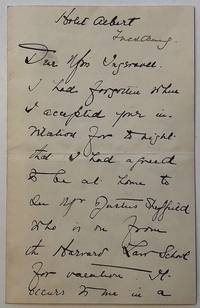 Hotel Albert
Dear Mrs
I had forgotten when
I accepted your in-
vitation for to-night
that I had agreed
to be at home to
see Mr Sheffield
who is on from
the Harvard Law School
for vacation — It
occurs to me in a